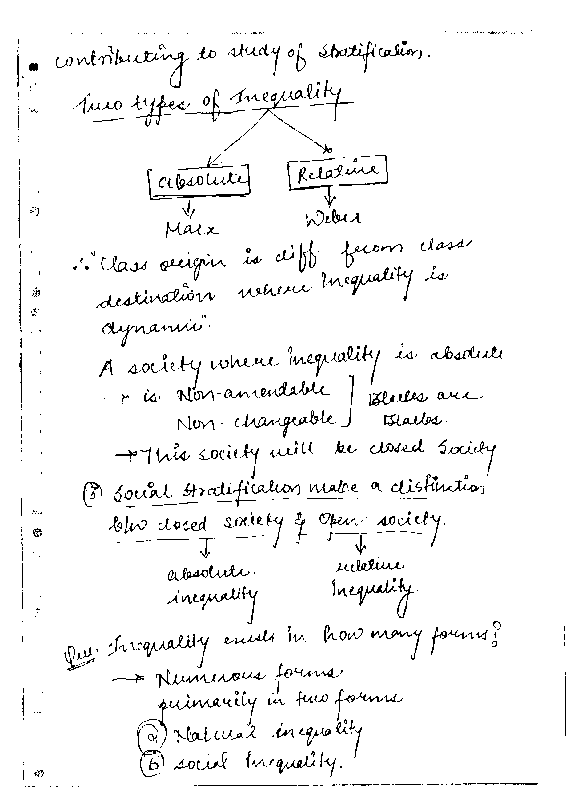 contributing to study of stratification.
Two types of Inequality
Absolute Relative
Marx Weber
∴ "Class origin is diff from class
destination where Inequality is
dynamic".
A society where Inequality is absolute
is Non-amendable Blacks are
Non-changeable Blacks.
→ This society will be closed society
(5) Social Stratification make a distinction
b/w closed society & Open society.
absolute relative
inequality Inequality.
Que. Inequality exists in how many forms?
→ Numerous forms
primarily in two forms
(a) Natural inequality
(b) social Inequality.